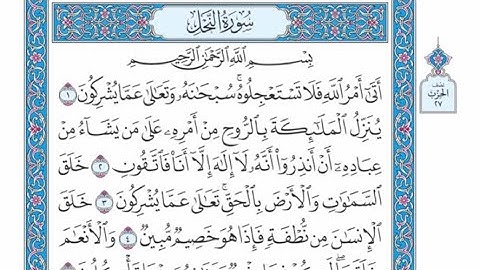 سُورَةُ النَّحْلِ
بِسْمِ اللَّهِ الرَّحْمَٰنِ الرَّحِيمِ
أَتَىٰٓ أَمْرُ اللَّهِ فَلَا تَسْتَعْجِلُوهُ ۚ سُبْحَانَهُۥ وَتَعَالَىٰ عَمَّا يُشْرِكُونَ ١
يُنَزِّلُ الْمَلَٰٓئِكَةَ بِالرُّوحِ مِنْ أَمْرِهِۦ عَلَىٰ مَن يَشَآءُ مِنْ
عِبَادِهِۦٓ أَنْ أَنذِرُوٓا۟ أَنَّهُۥ لَآ إِلَٰهَ إِلَّآ أَنَا۠ فَاتَّقُونِ ٢ خَلَقَ
السَّمَٰوَٰتِ وَالْأَرْضَ بِالْحَقِّ ۚ تَعَالَىٰ عَمَّا يُشْرِكُونَ ٣ خَلَقَ
الْإِنسَٰنَ مِن نُّطْفَةٍ فَإِذَا هُوَ خَصِيمٌ مُّبِينٌ ٤ وَالْأَنْعَٰمَ
نصف
الحزب
٢٧